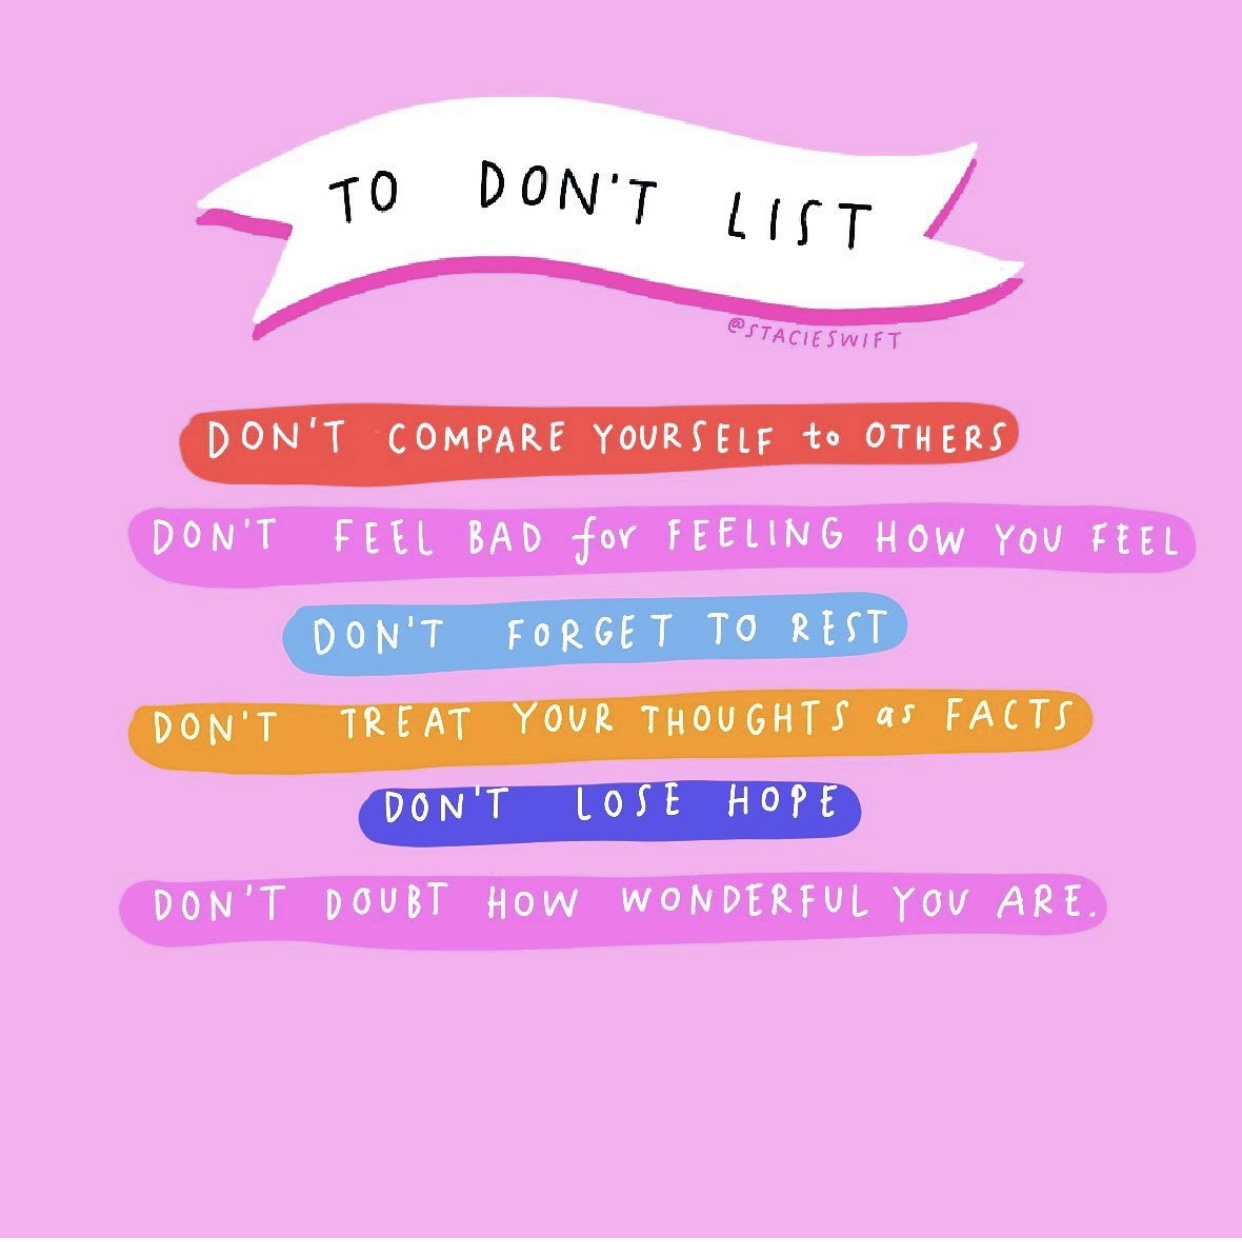 TO DON'T LIST
@STACIESWIFT
DON'T COMPARE YOURSELF to OTHERS
DON'T FEEL BAD for FEELING HOW YOU FEEL
DON'T FORGET TO REST
DON'T TREAT YOUR THOUGHTS as FACTS
DON'T LOSE HOPE
DON'T DOUBT HOW WONDERFUL YOU ARE.